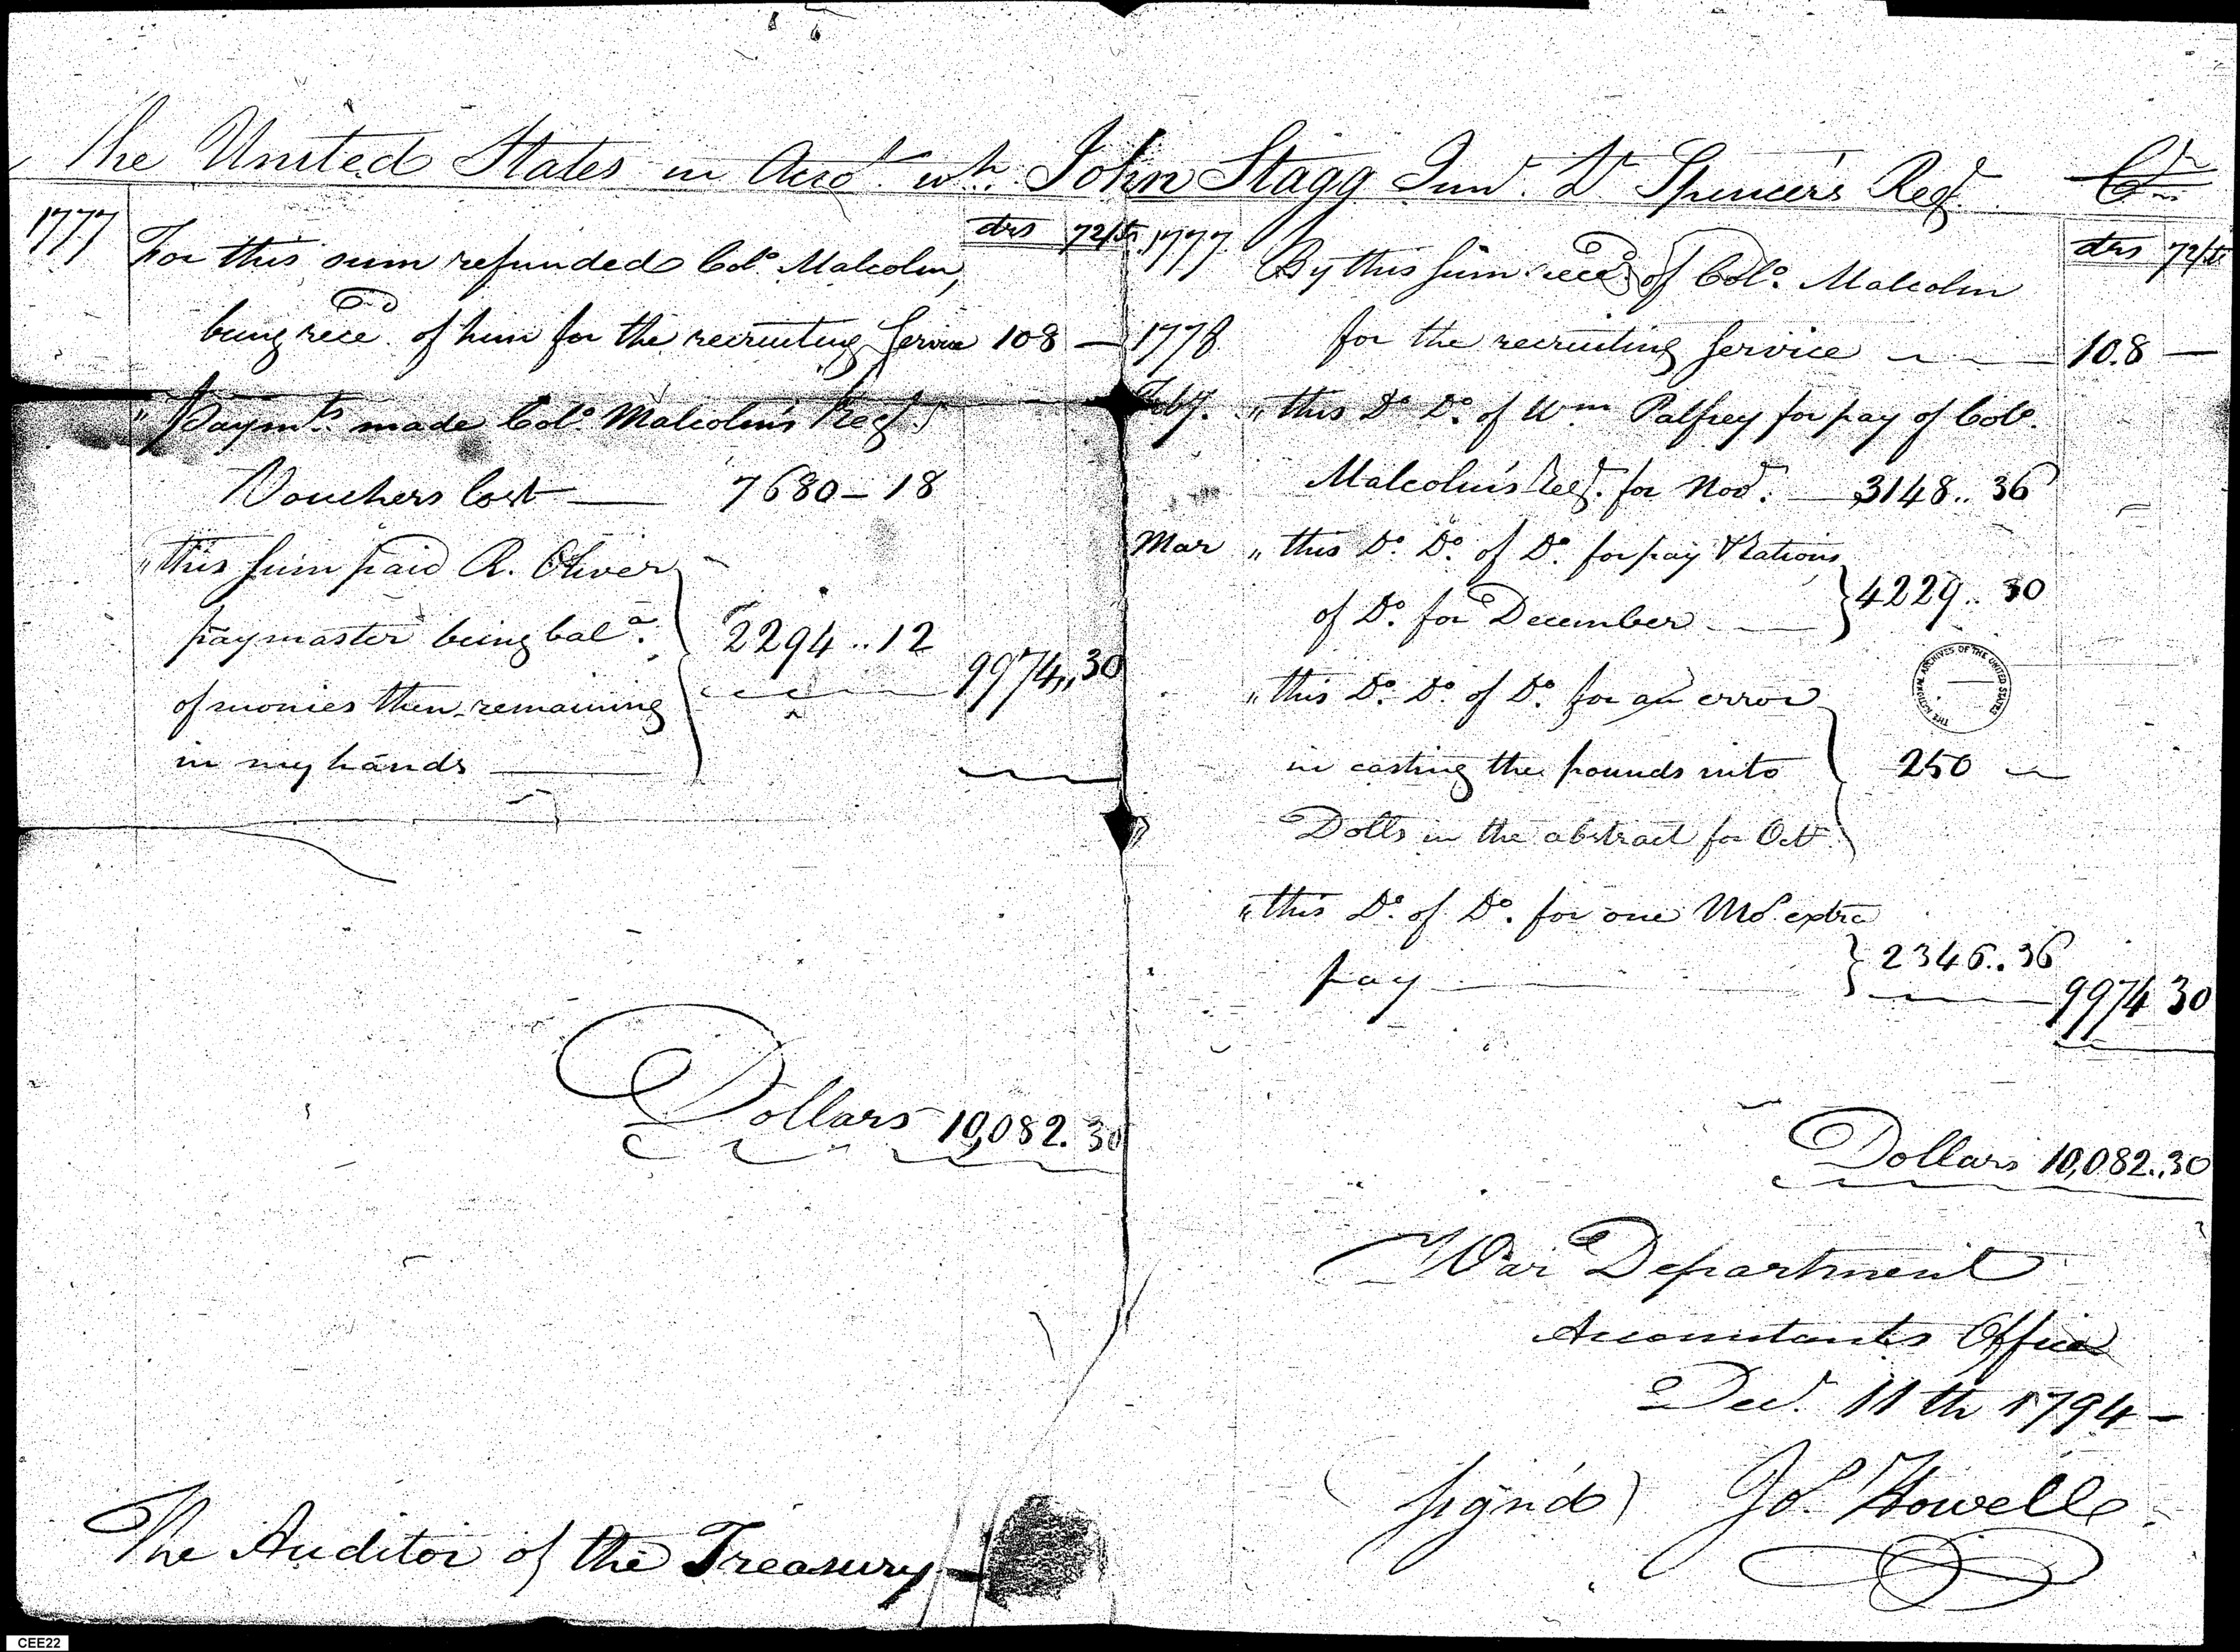 The United States in Accot. wth. John Stagg Junr. Lt Spencer's Regt. Cr.
1777
drs 72/ds
For this sum refunded Colo. Malcolm,
being recd. of him for the recruiting Service 108 —
" Paymts made Colo. Malcolm's Regt.
Vouchers lost — 7680 – 18
" this sum paid R. Oliver
paymaster being bala.
of monies then remaining
in my hands —
2294 .. 12
9974,, 30
Dollars 10,082. 30
The Auditor of the Treasury —
1777
drs 72/ds
By this sum recd. of Colo. Malcolm
1778
for the recruiting Service — 108 —
Feby. " this Do. Do. of Wm Palfrey for pay of Colo.
Malcolm's Regt. for Novr. — 3148 .. 36
Mar " this Do. Do. of Do. for pay & Rations
of Do. for December — 4229 .. 30
" this Do. Do. of Do. for an error
in casting the pounds into
Dolls in the abstract for Octr.
250 —
" this Do. of Do. for one Mo. extra
pay — 2346 .. 36
9974 30
Dollars 10,082..30
War Department
Accountants Office
Decr. 11th 1794 –
(sign'd) Jo. Howell
THE NATIONAL ARCHIVES OF THE UNITED STATES
CEE22